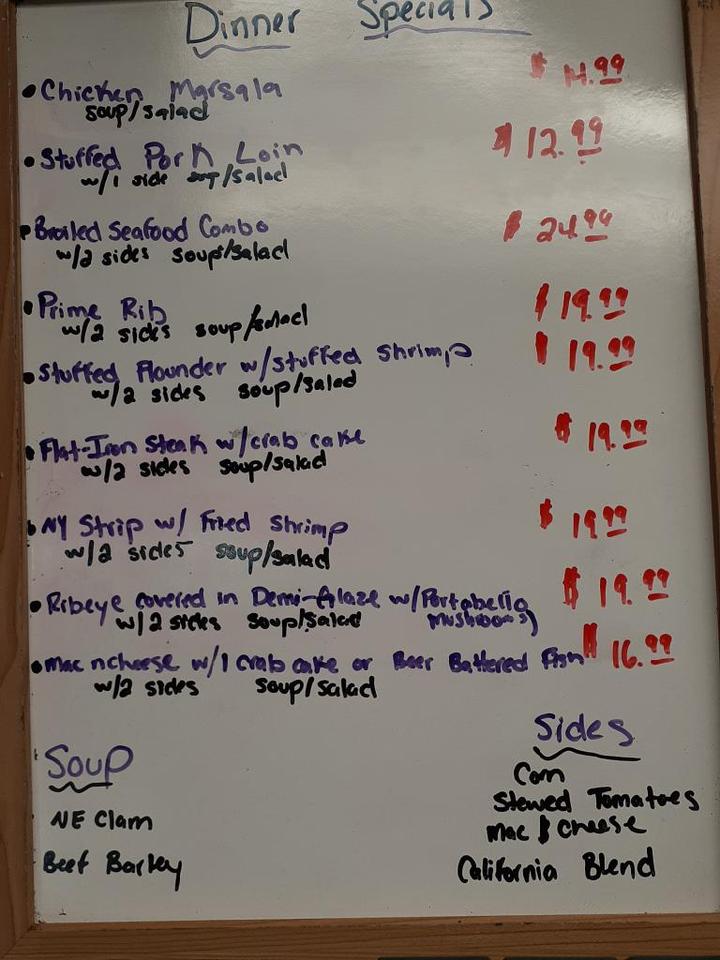 Dinner Specials
• Chicken Marsala $ 14.99
soup/salad
• Stuffed Pork Loin $ 12.99
w/1 side soup/salad
• Broiled Seafood Combo $ 24.99
w/2 sides soup/salad
• Prime Rib $ 19.99
w/2 sides soup/salad
• Stuffed Flounder w/stuffed shrimp $ 19.99
w/2 sides soup/salad
• Flat-Iron Steak w/crab cake $ 19.99
w/2 sides soup/salad
• NY Strip w/ Fried Shrimp $ 19.99
w/2 sides soup/salad
• Ribeye covered in Demi-Glaze w/Portabello $ 19.99
w/2 sides soup/salad mushrooms)
• Mac ncheese w/1 crab cake or Beer Battered Fish $ 16.99
w/2 sides soup/salad
Soup
NE Clam
Beef Barley
Sides
Corn
Stewed Tomatoes
Mac & cheese
California Blend